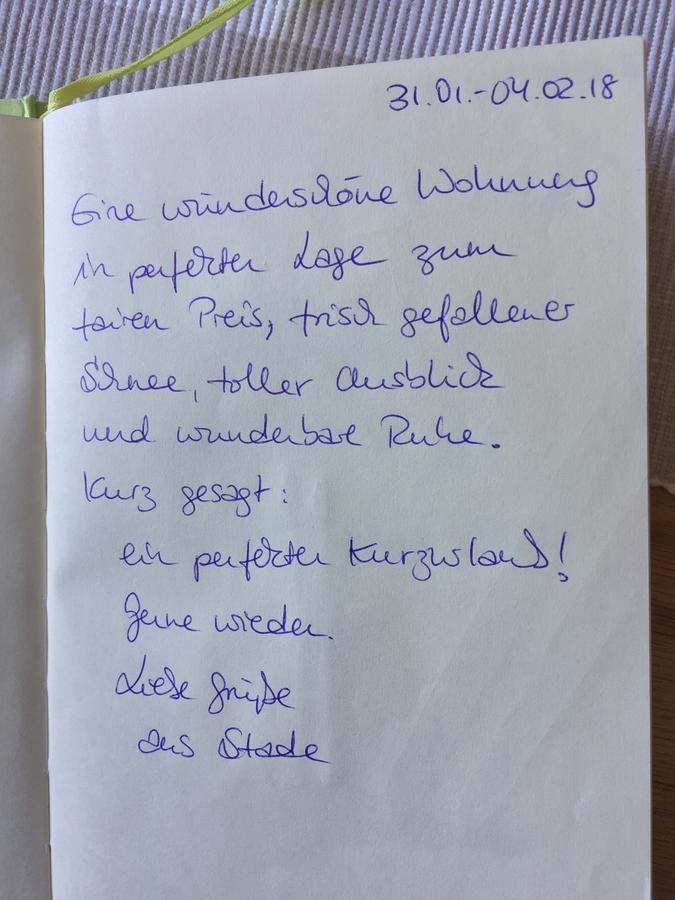 31.01.-04.02.18
Eine wunderschöne Wohnung
in perfekter Lage zum
fairen Preis, frisch gefallener
Schnee, toller Ausblick
und wunderbare Ruhe.
Kurz gesagt:
ein perfekter Kurzurlaub!
Gerne wieder.
Liebe Grüße
aus Stade